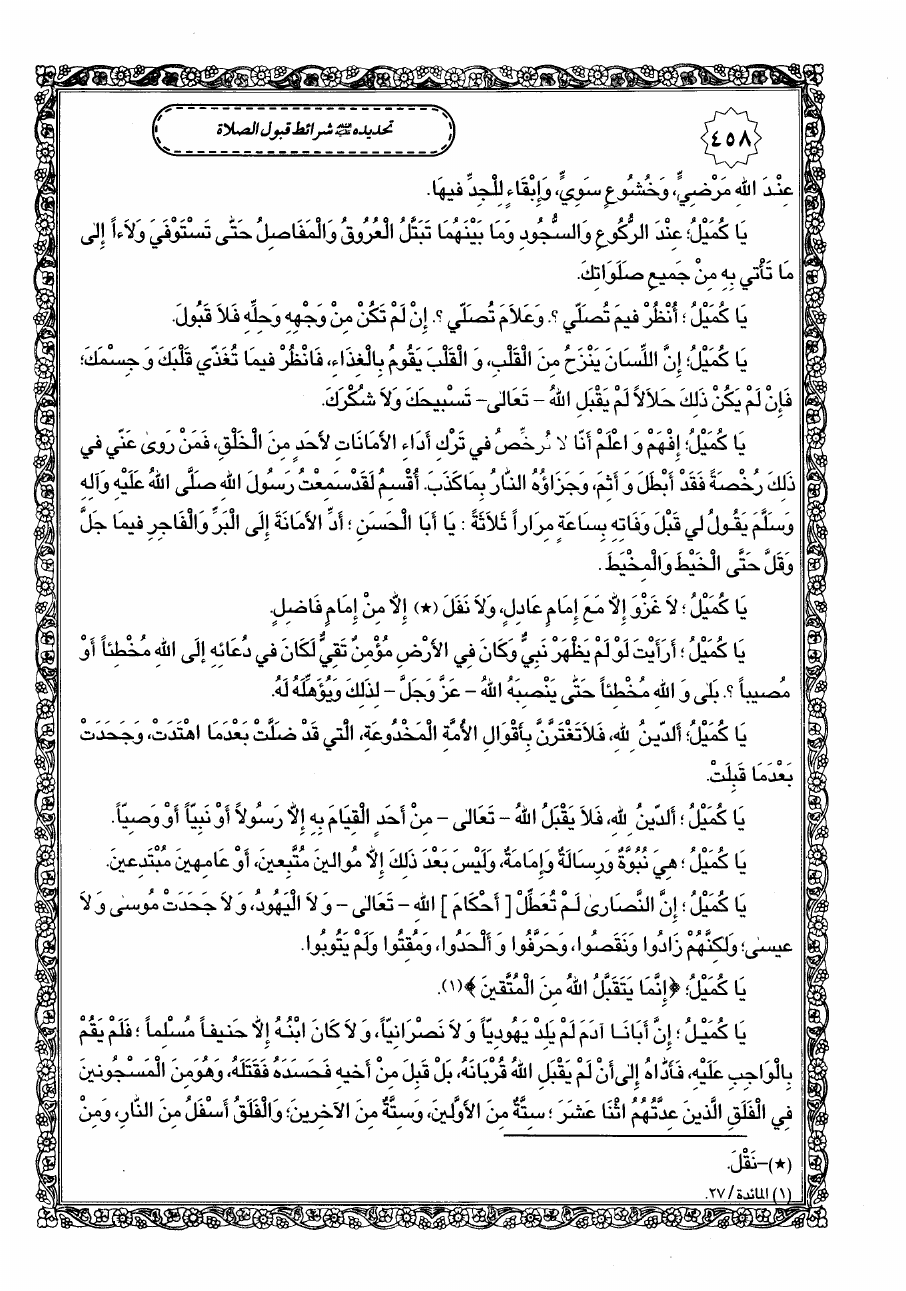 ٤٥٨
تحديده ﷺ شرائط قبول الصلاة
عِنْدَ اللهِ مَرْضِيٍّ، وَخُشُوعٍ سَوِيٍّ، وَإِبْقَاءٍ لِلْجِدِّ فيهَا.
يَا كُمَيْلُ؛ عِنْدَ الرُّكُوعِ وَالسُّجُودِ وَمَا بَيْنَهُمَا تَبَتَّلُ الْعُرُوقُ وَالْمَفَاصِلُ حَتّٰى تَسْتَوْفَيَ وَلَاءاً إِلىٰ
مَا تَأْتي بِهِ مِنْ جَميعِ صَلَوَاتِكَ.
يَا كُمَيْلُ ؛ أُنْظُرْ فيمَ تُصَلّي ؟. وَعَلَامَ تُصَلّي ؟. إِنْ لَمْ تَكُنْ مِنْ وَجْهِهِ وَحِلِّهِ فَلَا قَبُولَ.
يَا كُمَيْلُ؛ إِنَّ اللِّسَانَ يَنْزَحُ مِنَ الْقَلْبِ، وَ الْقَلْبَ يَقُومُ بِالْغِذَاءِ، فَانْظُرْ فيمَا تُغَذّي قَلْبَكَ وَ جِسْمَكَ؛
فَإِنْ لَمْ يَكُنْ ذَلِكَ حَلَالاً لَمْ يَقْبَلِ اللهُ - تَعَالىٰ- تَسْبيحَكَ وَلَا شُكْرَكَ.
يَا كُمَيْلُ؛ إِفْهَمْ وَ اعْلَمْ أَنَّا لَا نُرَخِّصُ في تَرْكِ أَدَاءِ الأَمَانَاتِ لأَحَدٍ مِنَ الْخَلْقِ، فَمَنْ رَوىٰ عَنّي في
ذَلِكَ رُخْصَةً فَقَدْ أَبْطَلَ وَ أَثِمَ، وَجَزَاؤُهُ النَّارُ بِمَا كَذَبَ. أُقْسِمُ لَقَدْ سَمِعْتُ رَسُولَ اللهِ صَلَّى اللهُ عَلَيْهِ وَآلِهِ
وَسَلَّمَ يَقُولُ لي قَبْلَ وَفَاتِهِ بِسَاعَةٍ مِرَاراً ثَلَاثَةً : يَا أَبَا الْحَسَنِ ؛ أَدِّ الأَمَانَةَ إِلَى الْبَرِّ وَالْفَاجِرِ فيمَا جَلَّ
وَقَلَّ حَتَّى الْخَيْطَ وَالْمِخْيَطَ.
يَا كُمَيْلُ ؛ لَا غَزْوَ إِلَّا مَعَ إِمَامٍ عَادِلٍ، وَلَا نَفَلَ (★) إِلَّا مِنْ إِمَامٍ فَاضِلٍ.
يَا كُمَيْلُ ؛ أَرَأَيْتَ لَوْ لَمْ يَظْهَرْ نَبِيٌّ وَكَانَ فِي الأَرْضِ مُؤْمِنٌ تَقِيٌّ لَكَانَ في دُعَائِهِ إِلَى اللهِ مُخْطِئاً أَوْ
مُصيباً ؟. بَلىٰ وَ اللهِ مُخْطِئاً حَتّٰى يَنْصِبَهُ اللهُ - عَزَّ وَجَلَّ - لِذَلِكَ وَيُؤَهِّلَهُ لَهُ.
يَا كُمَيْلُ؛ أَلدّينُ لِلهِ، فَلَا تَغْتَرَّنَّ بِأَقْوَالِ الأُمَّةِ الْمَخْدُوعَةِ، الَّتي قَدْ ضَلَّتْ بَعْدَمَا اهْتَدَتْ، وَجَحَدَتْ
بَعْدَمَا قَبِلَتْ.
يَا كُمَيْلُ؛ أَلدّينُ لِلهِ، فَلَا يَقْبَلُ اللهُ - تَعَالىٰ - مِنْ أَحَدٍ الْقِيَامَ بِهِ إِلَّا رَسُولاً أَوْ نَبِيّاً أَوْ وَصِيّاً.
يَا كُمَيْلُ؛ هِيَ نُبُوَّةٌ وَرِسَالَةٌ وَإِمَامَةٌ، وَلَيْسَ بَعْدَ ذَلِكَ إِلَّا مُوالينَ مُتَّبِعينَ، أَوْ عَامِهينَ مُبْتَدِعينَ.
يَا كُمَيْلُ ؛ إِنَّ النَّصَارىٰ لَمْ تُعَطِّلْ [ أَحْكَامَ ] اللهِ - تَعَالىٰ - وَ لَا الْيَهُودُ، وَ لَا جَحَدَتْ مُوسىٰ وَ لَا
عيسىٰ؛ وَلٰكِنَّهُمْ زَادُوا وَنَقَصُوا، وَحَرَّفُوا وَ أَلْحَدُوا، وَمُقِتُوا وَلَمْ يَتُوبُوا.
يَا كُمَيْلُ؛ ﴿إِنَّمَا يَتَقَبَّلُ اللهُ مِنَ الْمُتَّقينَ﴾(١).
يَا كُمَيْلُ ؛ إِنَّ أَبَانَا آدَمَ لَمْ يَلِدْ يَهُودِيّاً وَ لَا نَصْرَانِيّاً، وَ لَا كَانَ ابْنُهُ إِلَّا حَنيفاً مُسْلِماً ؛ فَلَمْ يَقُمْ
بِالْوَاجِبِ عَلَيْهِ، فَأَدَّاهُ إِلىٰ أَنْ لَمْ يَقْبَلِ اللهُ قُرْبَانَهُ، بَلْ قَبِلَ مِنْ أَخيهِ فَحَسَدَهُ فَقَتَلَهُ، وَهُوَ مِنَ الْمَسْجُونينَ
فِي الْفَلَقِ الَّذينَ عِدَّتُهُمُ اثْنَا عَشَرَ ؛ سِتَّةٌ مِنَ الأَوَّلينَ، وَسِتَّةٌ مِنَ الآخِرينَ؛ وَالْفَلَقُ أَسْفَلُ مِنَ النَّارِ، وَمِنْ
(★)-نَقْلَ.
(١) المائدة / ٢٧.